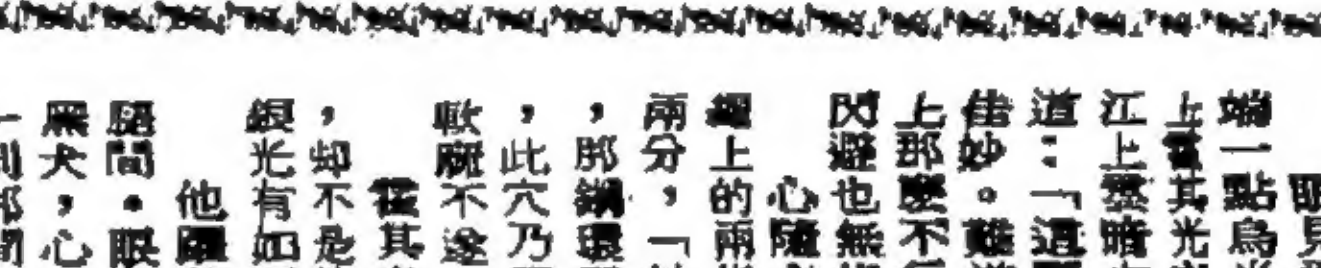 眼見
端一點烏
上電其光
江上雲暗
道：「這
佳妙。難
上那麼不
閃避也無
心隨
繩上的兩
兩分，「
，那鋼環
，此穴乃
軟麻不遂
霍其
，卻不是
銀光有如
他雖
腿間。眼
黑犬，心